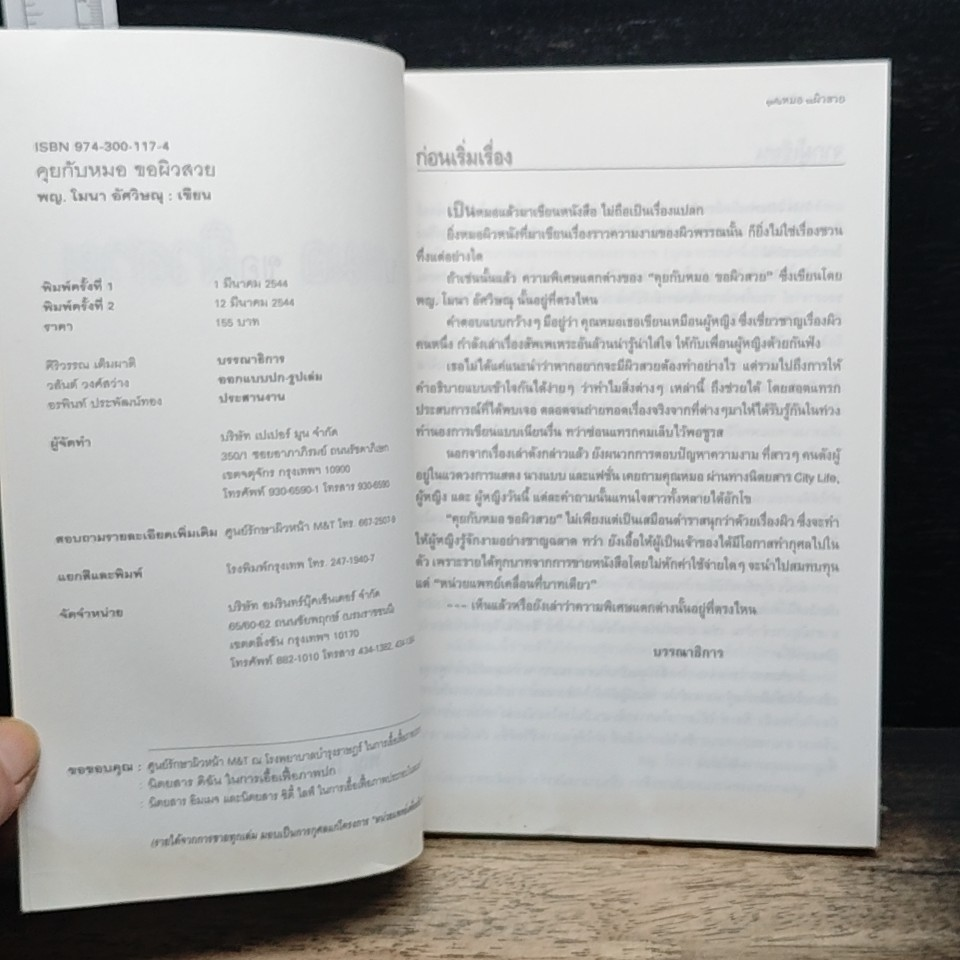 ISBN 974-300-117-4
คุยกับหมอ ขอผิวสวย
พญ. โมนา อัศวิษณุ : เขียน
พิมพ์ครั้งที่ 1 1 มีนาคม 2544
พิมพ์ครั้งที่ 2 12 มีนาคม 2544
ราคา 155 บาท
ศิริวรรณ เต็มผาติ บรรณาธิการ
วสันต์ วงศ์สว่าง ออกแบบปก-รูปเล่ม
อรพินท์ ประพัฒน์ทอง ประสานงาน
ผู้จัดทำ บริษัท เปเปอร์ มูน จำกัด
350/1 ซอยอาภาภิรมย์ ถนนรัชดาภิเษก
เขตจตุจักร กรุงเทพฯ 10900
โทรศัพท์ 930-6590-1 โทรสาร 930-6590
สอบถามรายละเอียดเพิ่มเติม ศูนย์รักษาผิวหน้า M&T โทร. 667-2507-9
แยกสีและพิมพ์ โรงพิมพ์กรุงเทพ โทร. 247-1940-7
จัดจำหน่าย บริษัท อมรินทร์บุ๊คเซ็นเตอร์ จำกัด
65/60-62 ถนนชัยพฤกษ์ (บรมราชชนนี)
เขตตลิ่งชัน กรุงเทพฯ 10170
โทรศัพท์ 882-1010 โทรสาร 434-1382,
ขอขอบคุณ : ศูนย์รักษาผิวหน้า M&T ณ โรงพยาบาลบำรุงราษฎร์ ในการเอื้อเฟื้อ
: นิตยสาร ดิฉัน ในการเอื้อเฟื้อภาพปก
: นิตยสาร อิมเมจ และนิตยสาร ซิตี้ ไลฟ์ ในการเอื้อเฟื้อภาพ
(รายได้จากการขายทุกเล่ม มอบเป็นการกุศลแก่โครงการ "หน่วยแพทย์
ก่อนเริ่มเรื่อง
เป็นหมอแล้วมาเขียนหนังสือ ไม่ถือเป็นเรื่องแปลก
ยิ่งหมอผิวหนังที่มาเขียนเรื่องราวความงามของผิวพรรณนั้น ก็ยิ่งไม่ใช่เรื่องชวน
ทึ่งแต่อย่างใด
ถ้าเช่นนั้นแล้ว ความพิเศษแตกต่างของ "คุยกับหมอ ขอผิวสวย" ซึ่งเขียนโดย
พญ. โมนา อัศวิษณุ นั้นอยู่ที่ตรงไหน
คำตอบแบบกว้างๆ มีอยู่ว่า คุณหมอเธอเขียนเหมือนผู้หญิง ซึ่งเชี่ยวชาญเรื่องผิว
คนหนึ่ง กำลังเล่าเรื่องสัพเพเหระอันล้วนน่ารู้น่าใส่ใจ ให้กับเพื่อนผู้หญิงด้วยกันฟัง
เธอไม่ได้แค่แนะนำว่าหากอยากจะมีผิวสวยต้องทำอย่างไร แต่รวมไปถึงการให้
คำอธิบายแบบเข้าใจกันได้ง่ายๆ ว่าทำไมสิ่งต่างๆ เหล่านี้ ถึงช่วยได้ โดยสอดแทรก
ประสบการณ์ที่ได้พบเจอ ตลอดจนถ่ายทอดเรื่องจริงจากที่ต่างๆมาให้ได้รู้กันในท่วง
ทำนองการเขียนแบบเนียนรื่น ทว่าซ่อนแทรกคมเล็บไว้พอชูรส
นอกจากเรื่องเล่าดังกล่าวแล้ว ยังผนวกการตอบปัญหาความงาม ที่สาวๆ คนดังผู้
อยู่ในแวดวงการแสดง นางแบบ และแฟชั่น เคยถามคุณหมอ ผ่านทางนิตยสาร City Life,
ผู้หญิง และ ผู้หญิงวันนี้ แต่ละคำถามนั้นแทนใจสาวทั้งหลายได้อักโข
"คุยกับหมอ ขอผิวสวย" ไม่เพียงแต่เป็นเสมือนตำราสนุกว่าด้วยเรื่องผิว ซึ่งจะทำ
ให้ผู้หญิงรู้จักงามอย่างชาญฉลาด ทว่า ยังเอื้อให้ผู้เป็นเจ้าของได้มีโอกาสทำกุศลไปใน
ตัว เพราะรายได้ทุกบาทจากการขายหนังสือโดยไม่หักค่าใช้จ่ายใดๆ จะนำไปสมทบทุน
แด่ "หน่วยแพทย์เคลื่อนที่บาทเดียว"
--- เห็นแล้วหรือยังเล่าว่าความพิเศษแตกต่างนั้นอยู่ที่ตรงไหน
บรรณาธิการ